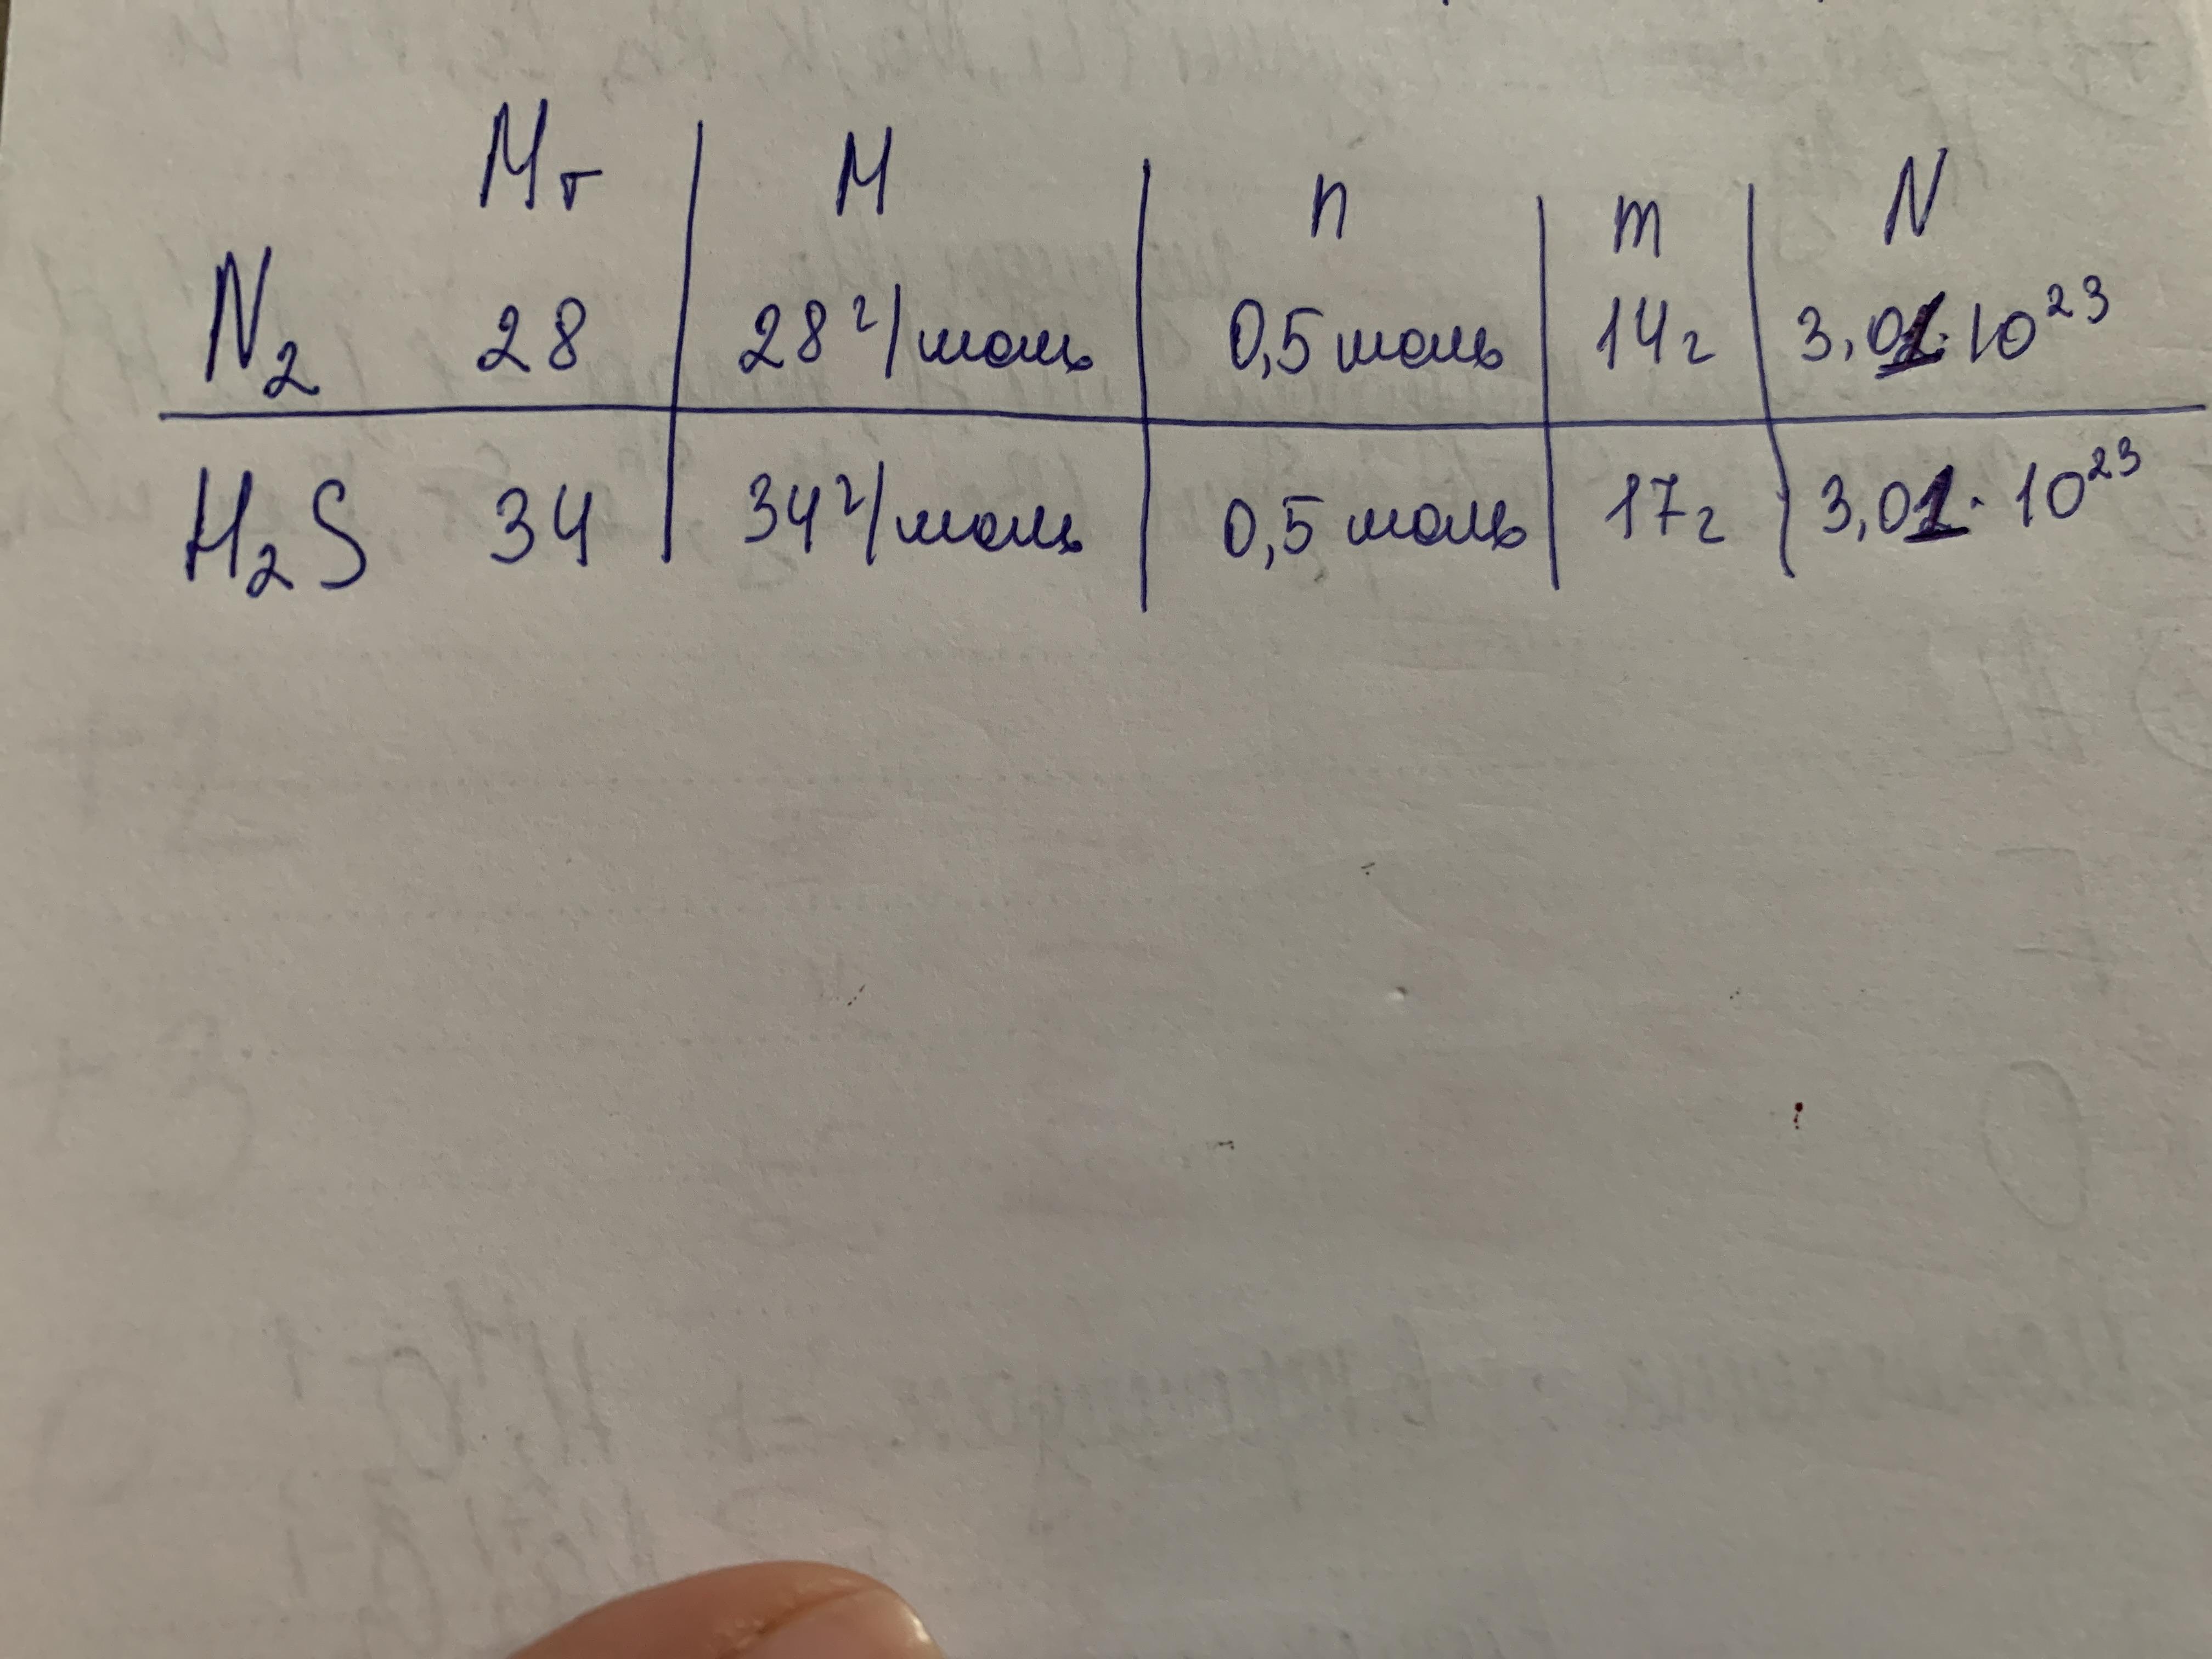 Mr M n m N
N₂ 28 28 г/моль 0,5 моль 14 г 3,01·10²³
H₂S 34 34 г/моль 0,5 моль 17 г 3,01·10²³